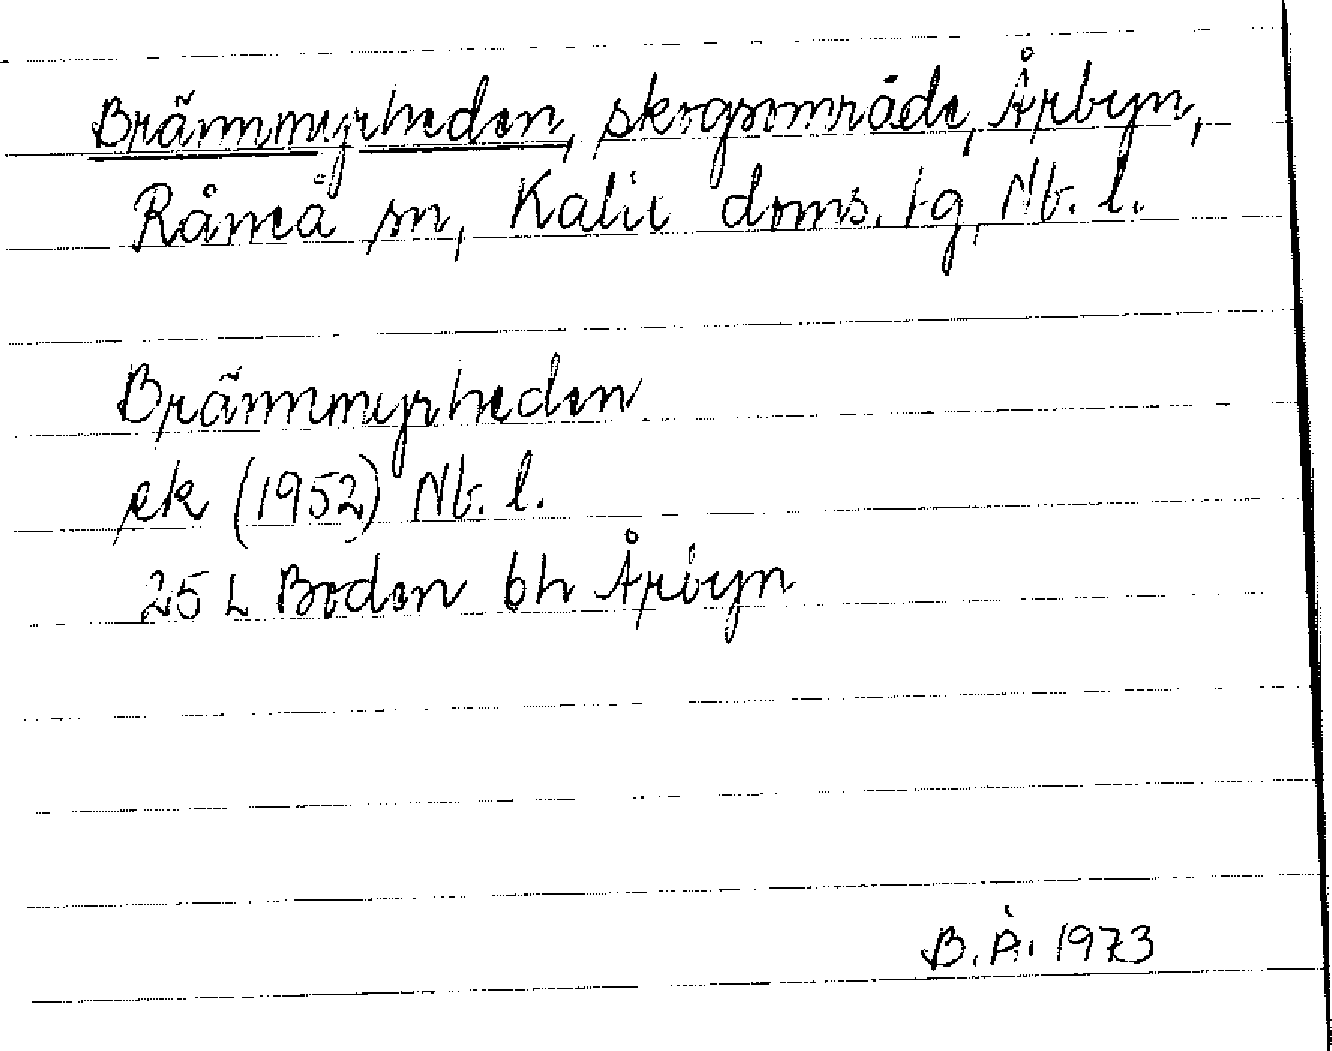 Brännmyrheden, skogsområde, Årbyn,
Råneå sn, Kalix doms. tg, Nb. l.
Brännmyrheden
ek (1952) Nb. l.
25 L Boden bh Årbyn
B. Å. 1973